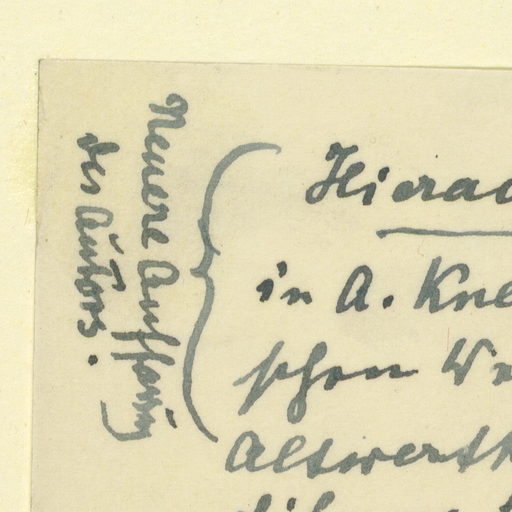 Neuere Auffassung
des Autors.
Hierac
in A. Kne
schen We
Altswerth